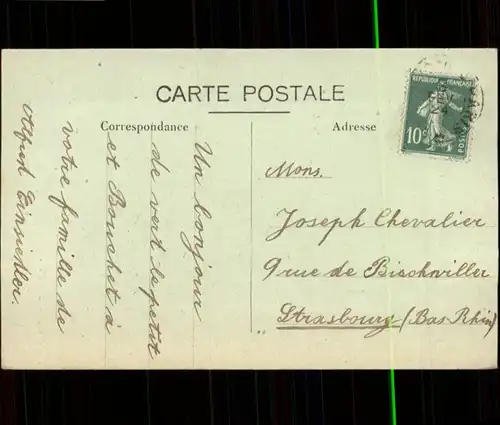 CARTE POSTALE
Correspondance
Un bonjour
de vert le petit
et Bouchet à
votre famille de
Alfred Einsichler.
Adresse
REPUBLIQUE FRANÇAISE
10c
POSTES
Mons.
Joseph Chevalier
9 rue de Bischwiller
Strasbourg (Bas Rhin)